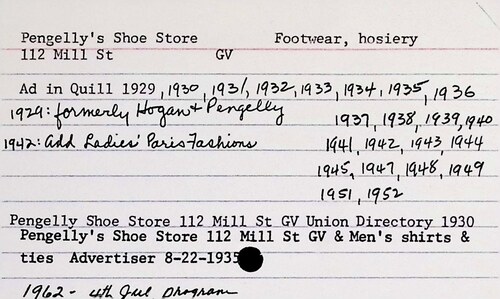 Pengelly's Shoe Store Footwear, hosiery
112 Mill St GV
Ad in Quill 1929, 1930, 1931, 1932, 1933, 1934, 1935, 1936
1929: formerly Hogan & Pengelly
1937, 1938, 1939, 1940
1942: Add Ladies' Paris Fashions
1941, 1942, 1943, 1944
1945, 1947, 1948, 1949
1951, 1952
Pengelly Shoe Store 112 Mill St GV Union Directory 1930
Pengelly's Shoe Store 112 Mill St GV & Men's shirts &
ties Advertiser 8-22-1935
1962 - 4th Jul program